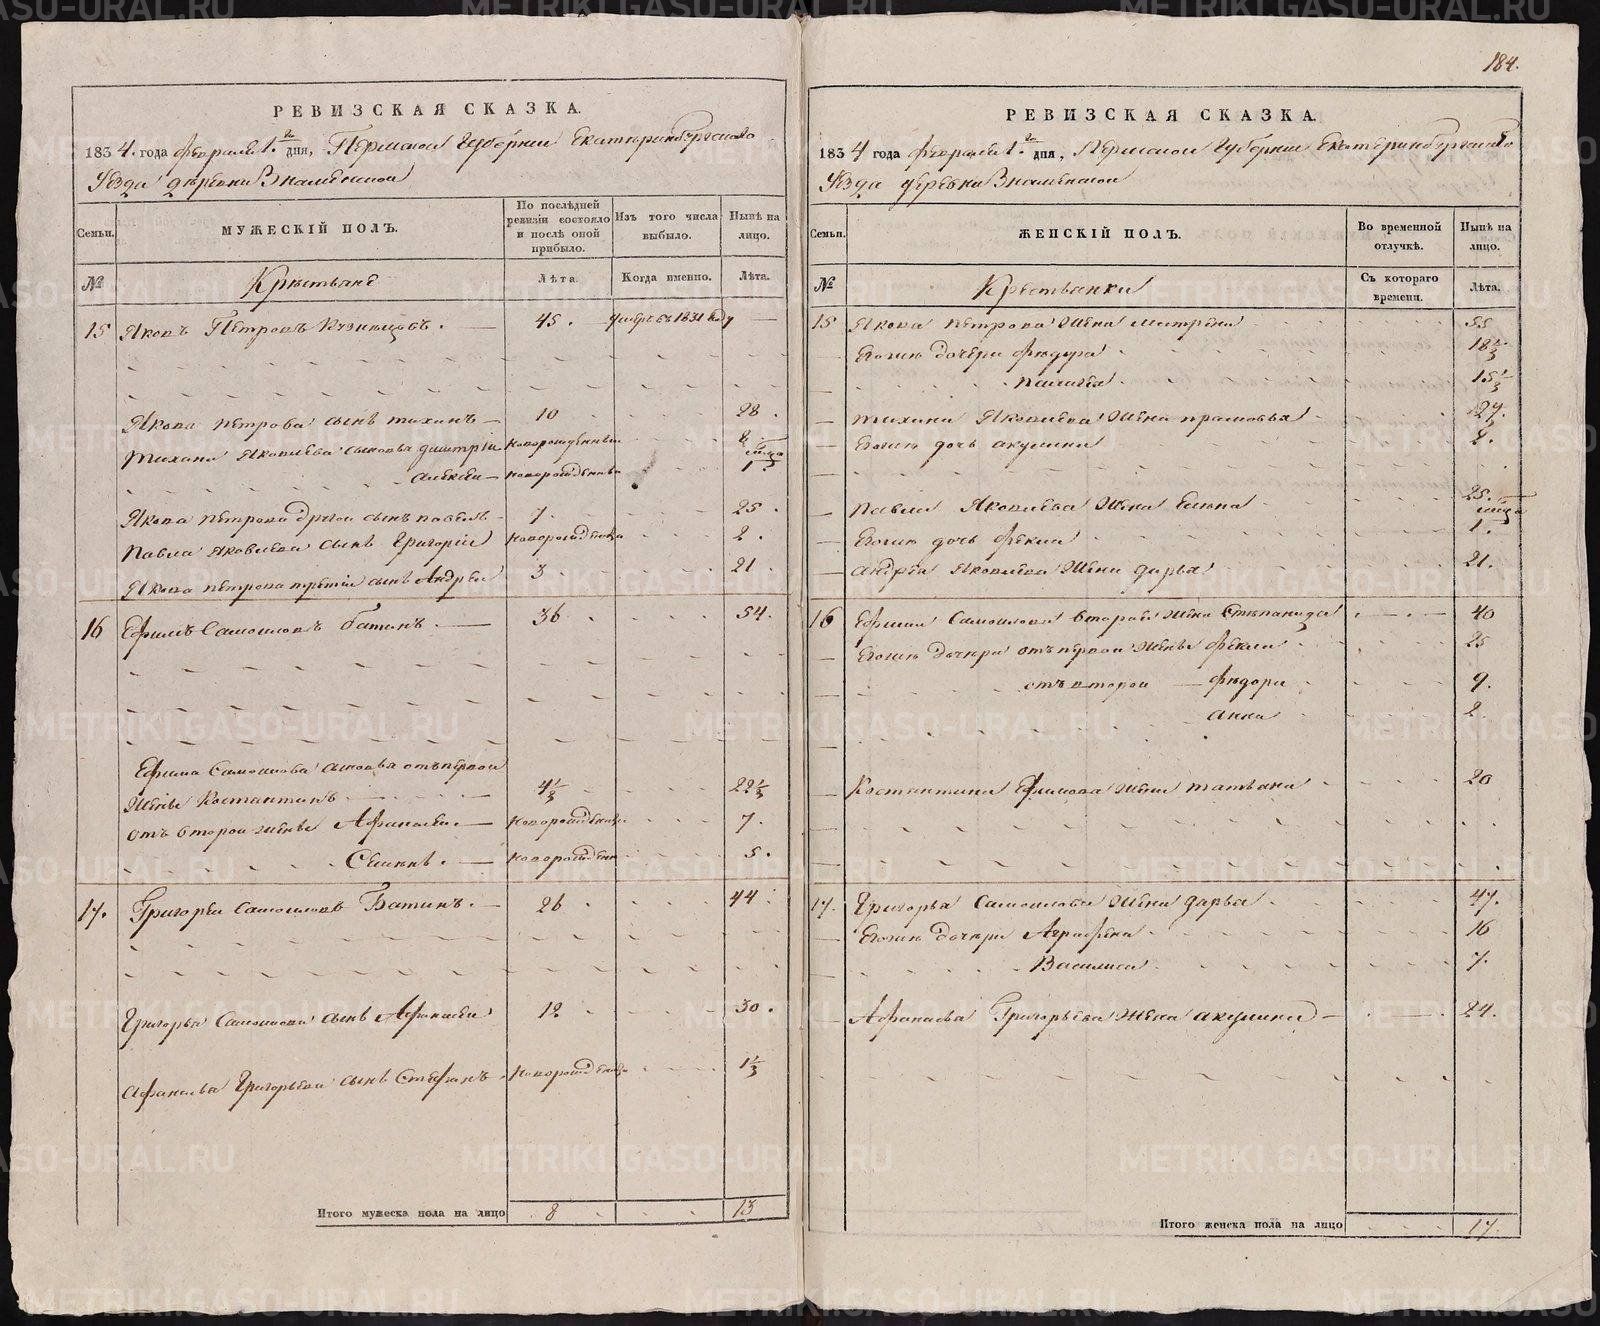 184.
РЕВИЗСКАЯ СКАЗКА.
1834. года февраля 1.го дня, Пермской Губернии Екатеринбургскаго
Уезда деревни Знаменской
Семьи. МУЖЕСКІЙ ПОЛЪ. По послѣдней ревизіи состояло и послѣ оной прибыло. Изъ того числа выбыло. Нынѣ на лицо.
№ Крестьяне Лѣта. Когда именно. Лѣта.
15 Яковъ Петровъ Кузнецовъ. 45. умре въ 1831 году
Якова Петрова сынъ Тихонъ 10 28.
Тихона Яковлева сыновья Дмитрій новорожденные 8
Алексей новорожденны 1.
Якова Петрова другой сынъ Павелъ 7. 25.
Павла Яковлева сынъ Григорій новорожденны 2.
Якова Петрова третій сынъ Андрей 3 21.
16 Ефимъ Самойловъ Батинъ. 36 54.
Ефима Самойлова сыновья отъ первой
жены Костантинъ 4½ 22½
отъ второй жены Афанасей новорожденны 7.
Семенъ. новорожден 5.
17. Григорей Самойловъ Батинъ. 26 44
Григорья Самойлова сынъ Афанасей 12 30.
Афанасья Григорьева сынъ Степанъ новорожденны 1½
Итого мужеска пола на лицо 8 13
РЕВИЗСКАЯ СКАЗКА.
1834 года февраля 1.го дня, Пермской Губернии Екатеринбургскаго
Уезда деревни Знаменской
Семьи. ЖЕНСКІЙ ПОЛЪ. Во временной отлучкѣ. Нынѣ на лицо.
№ Крестьянки Съ котораго времени. Лѣта.
15 Якова Петрова жена Матрена 55
Ево же дочери Федора 18½
Палагея 15½
Тихона Яковлева жена Прасковья 27.
Ево же дочь Акулина 2.
Павла Яковлева жена Елена 25.
Ево же дочь Фекла 1.
Андрея Яковлева жена Дарья 21.
16 Ефима Самойлова вторая жена Степанида 40
Ево же дочери отъ первой жены Фекла 25
отъ второй Федора 9.
Анна 2.
Костантина Ефимова жена Татьяна 20
17. Григорья Самойлова жена Дарья 47.
Ево же дочери Аграфена 16
Василиса 7.
Афанасья Григорьева жена Акулина 24.
Итого женска пола на лицо 17.
METRIKI.GASO-URAL.RU